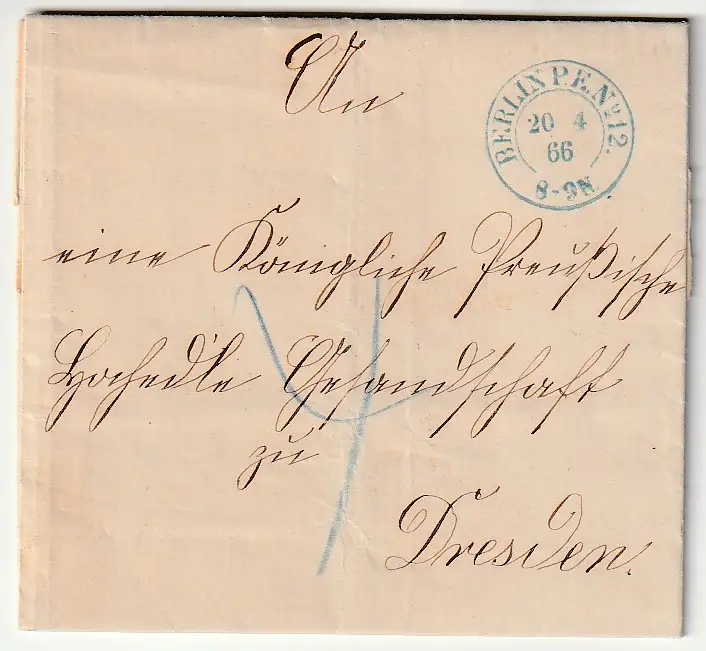 An
BERLIN P.E.No 12.
20 4
66
8-9N.
eine Königliche Preußische
Hochedle Gesandschaft
zu
4
Dresden.